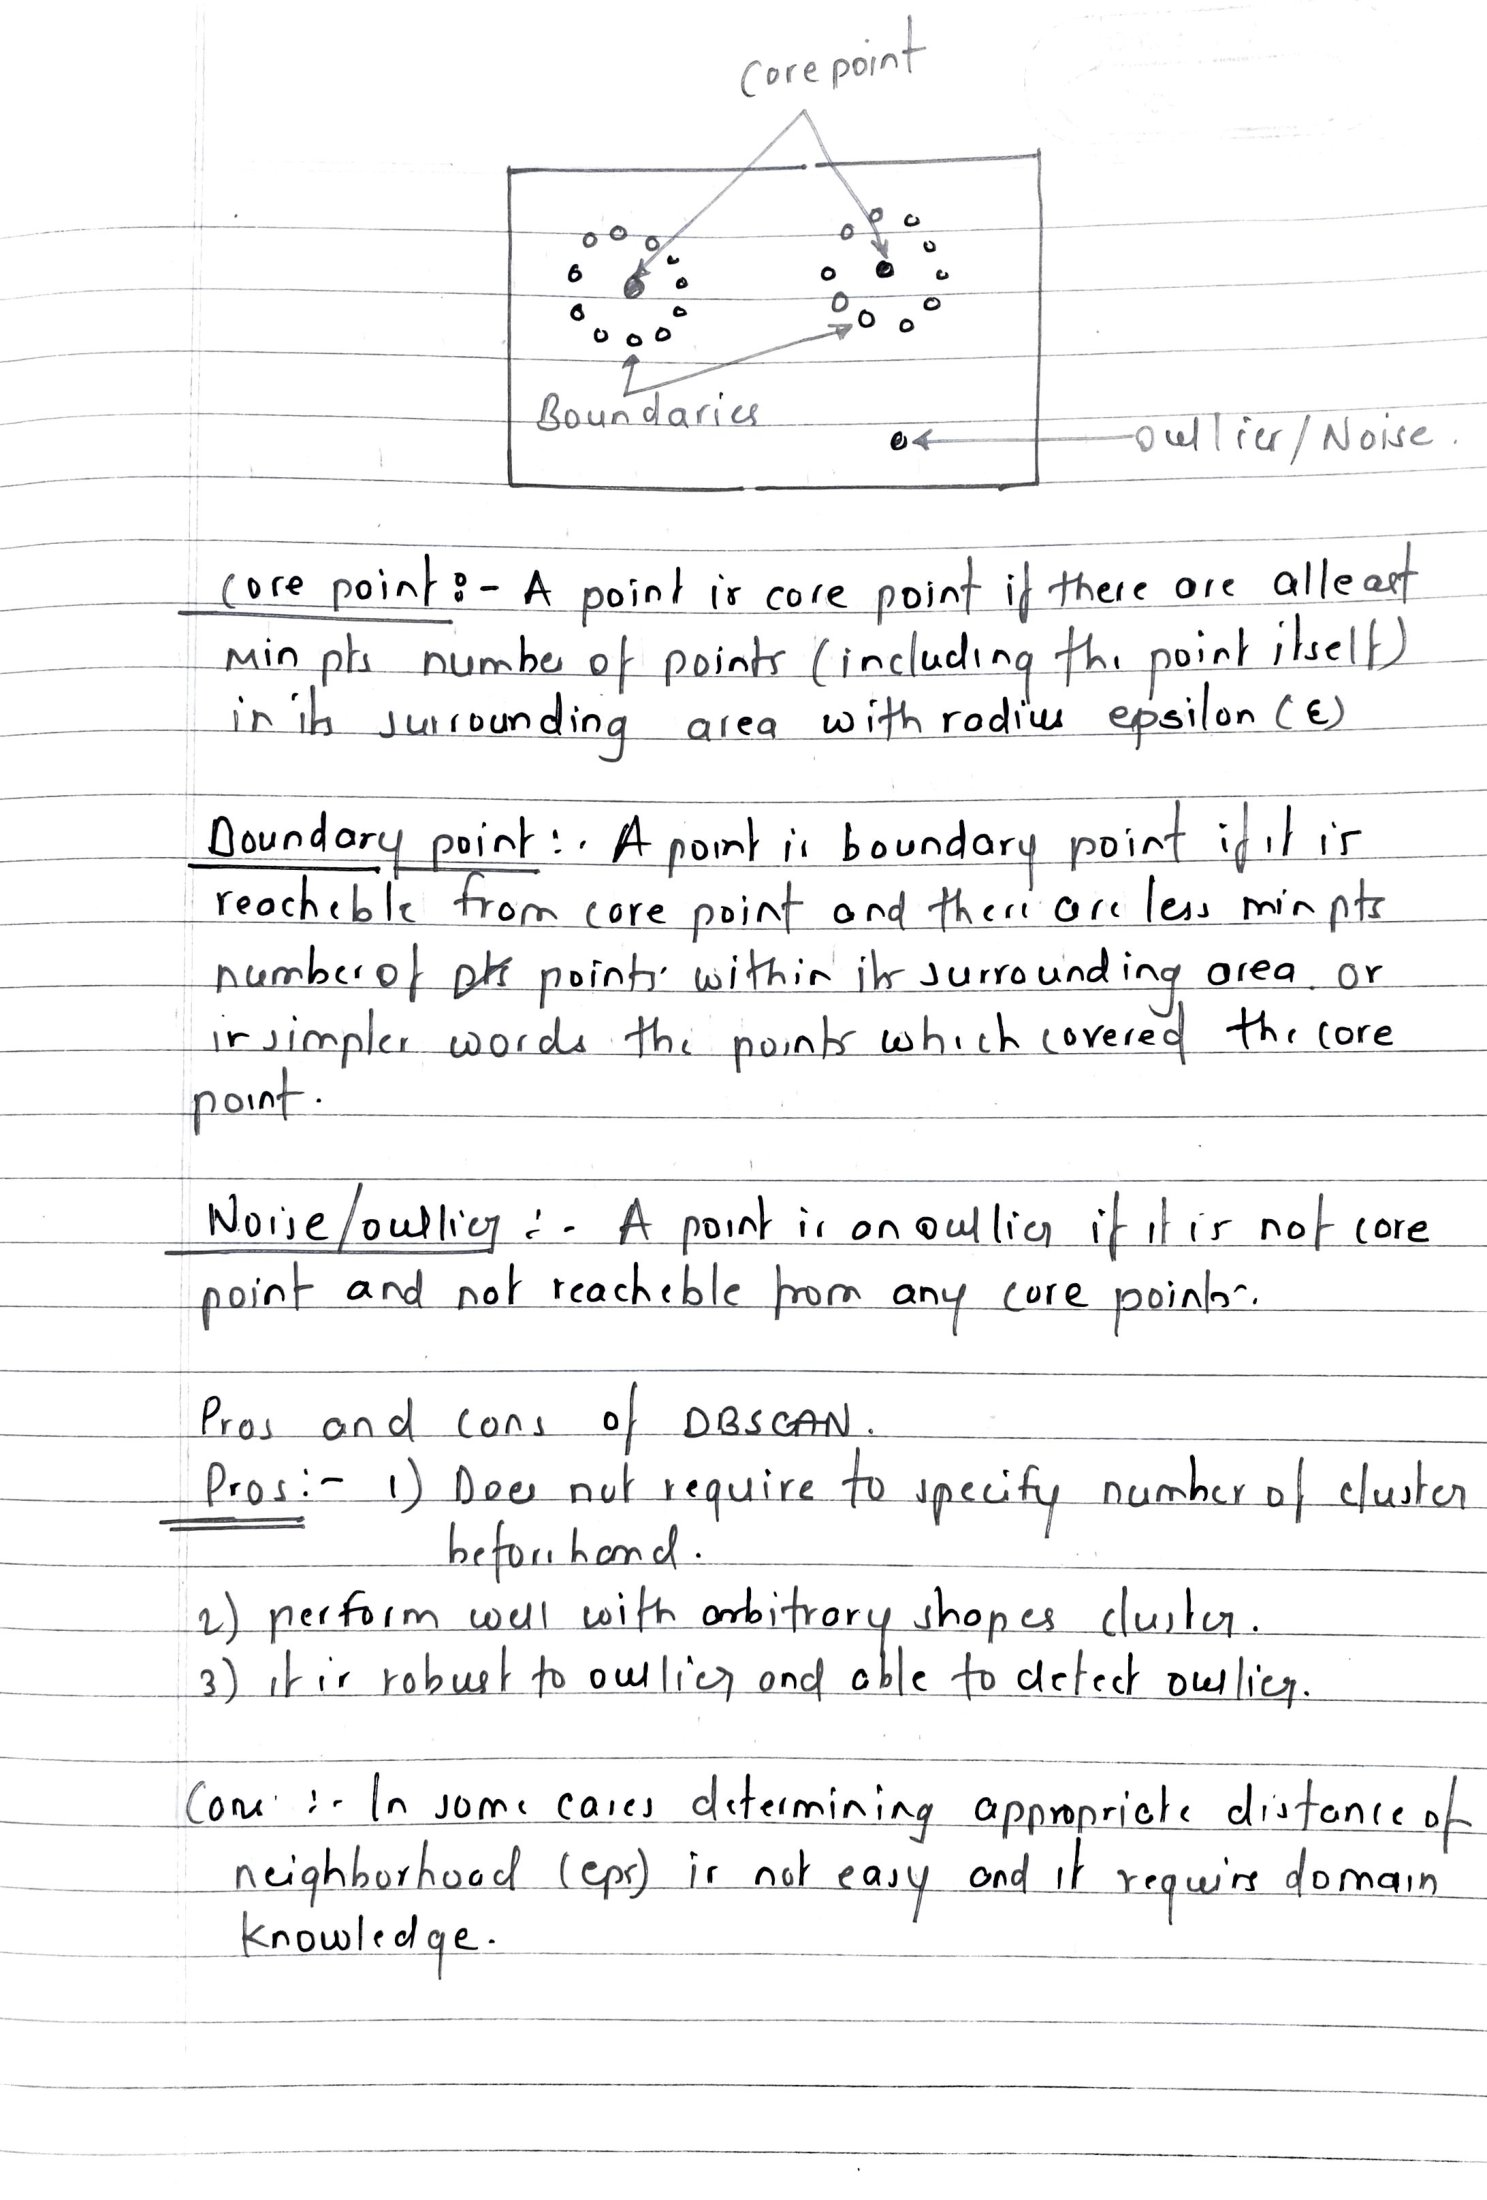 Core point
Boundaries
Outlier/Noise.
Core point :- A point is core point if there are atleast
Min pts number of points (including the point itself)
in its surrounding area with radius epsilon (ε)
Boundary point :- A point is boundary point if it is
reacheble from core point and there are less min pts
number of points within its surrounding area or
in simpler words the points which covered the core
point.
Noise/outlier :- A point is an outlier if it is not core
point and not reacheble from any core points.
Pros and cons of DBSCAN.
Pros :- 1) Does not require to specify number of cluster
beforehand.
2) perform well with arbitrary shapes cluster.
3) it is robust to outlier and able to detect outlier.
Cons :- In some cases determining appropriate distance of
neighborhood (eps) is not easy and it require domain
knowledge.